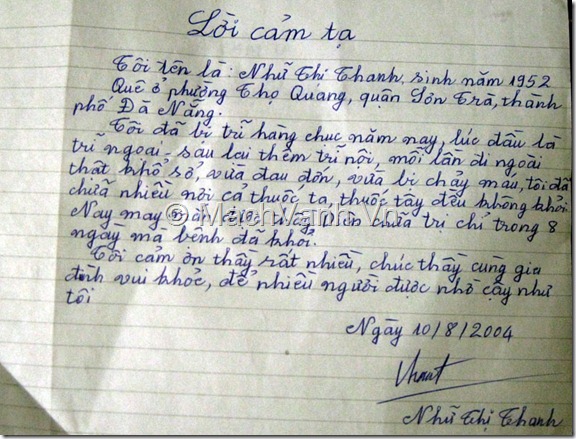 Lời cảm tạ
Tôi tên là: Nhữ Thị Thanh, sinh năm 1952
Quê ở phường Thọ Quang, quận Sơn Trà, thành
phố Đà Nẵng.
Tôi đã bị trĩ hàng chục năm nay, lúc đầu là
trĩ ngoại - sau lại thêm trĩ nội, mỗi lần đi ngoài
thật khổ sở, vừa đau đớn, vừa bị chảy máu, tôi đã
chữa nhiều nơi cả thuốc ta, thuốc tây đều không khỏi
Nay may chữa trị chỉ trong 8
ngày mà bệnh đã khỏi.
Tôi cảm ơn thầy rất nhiều, chúc thầy cùng gia
đình vui khỏe, để nhiều người được nhờ cậy như
tôi
Ngày 10/8/2004
Nhữ Thị Thanh